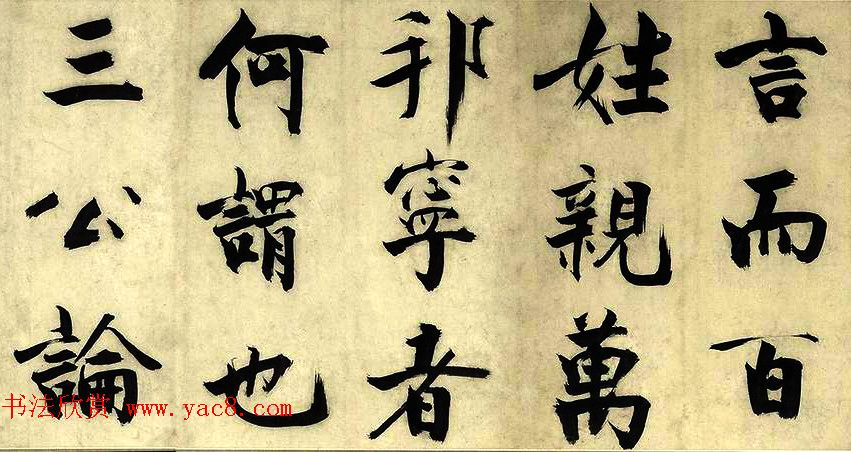 言而百
姓親萬
邦寧者
何謂也
三公論
书法欣赏 www.yac8.com